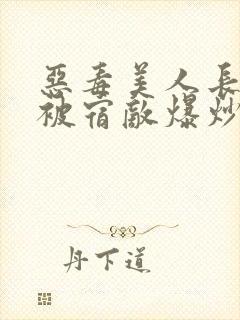 惡毒美人長
被宿敵爆炒
丹下道